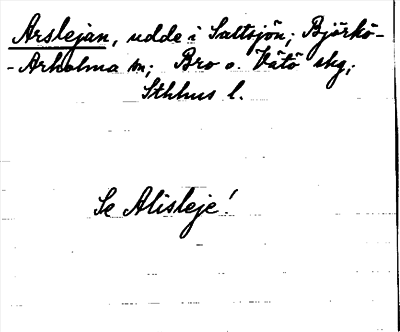 Arslejan, udde i Saltsjön; Björkö-
-Arholma sn; Bro o. Vätö skg;
Sthlms l.
Se Alisleje!